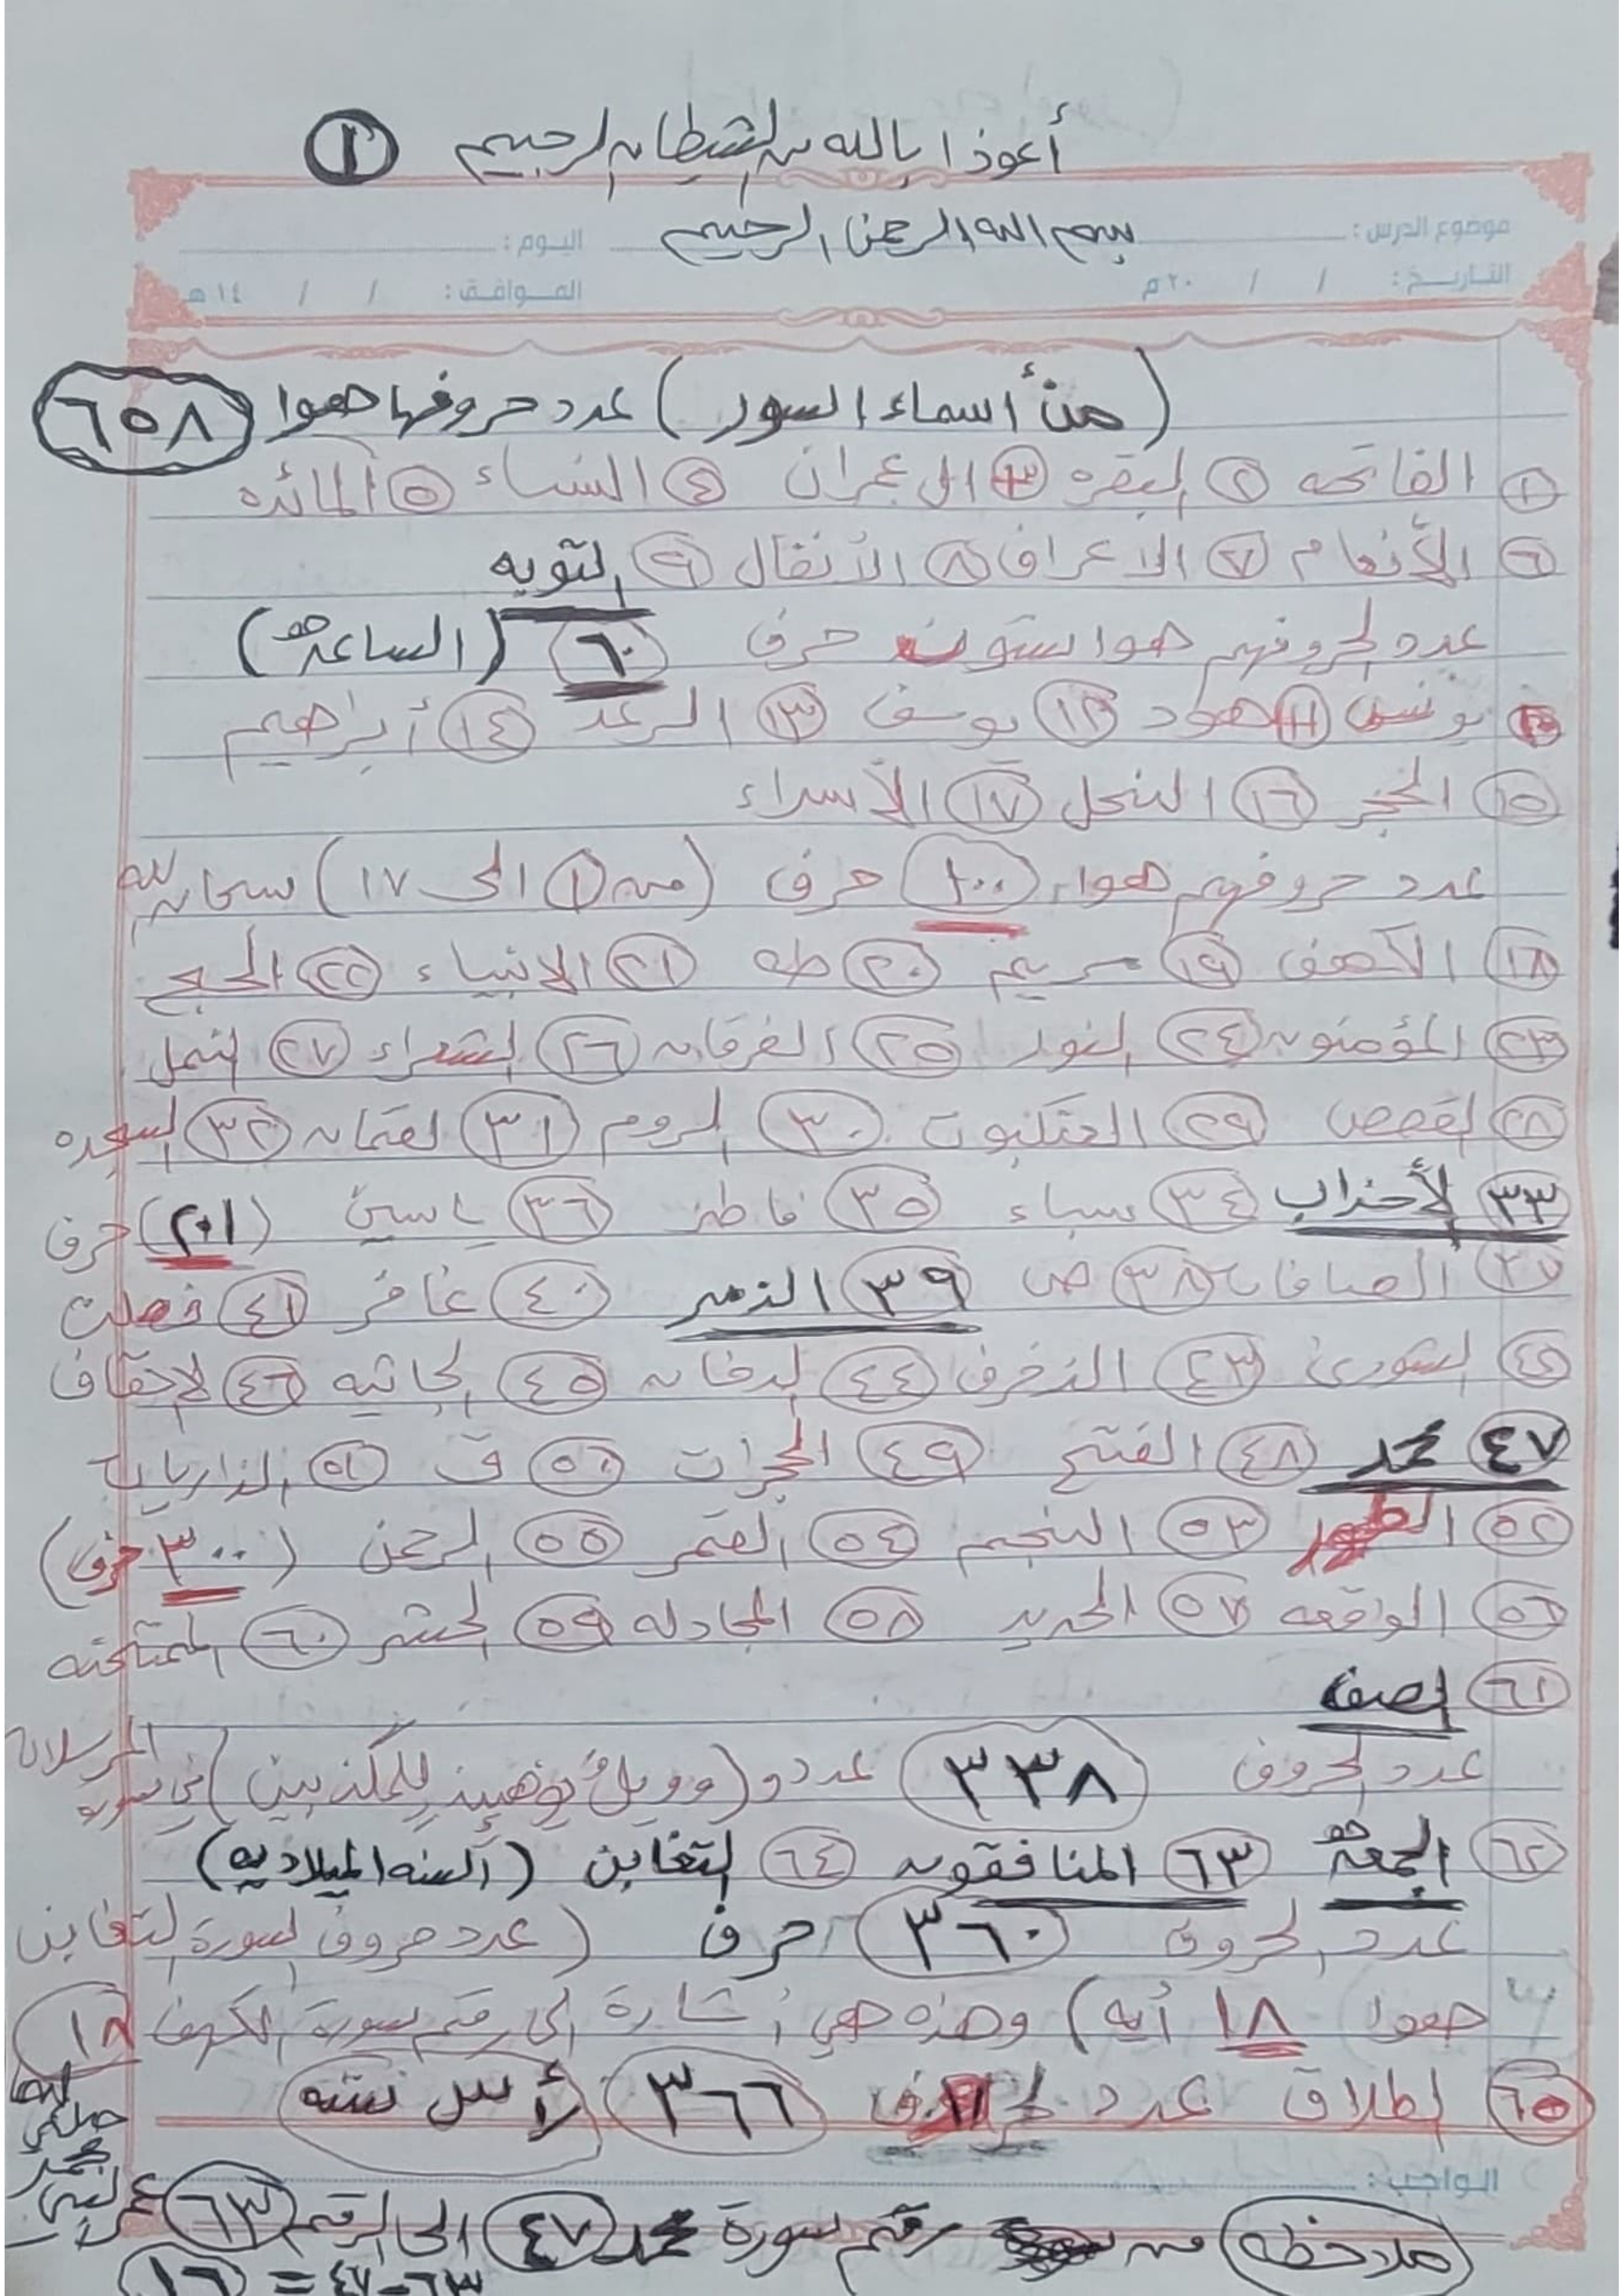 أعوذا بالله من الشيطان الرجيم ①
بسم الله الرحمن الرحيم
موضوع الدرس: اليوم:
التاريخ: / / ٢٠م الموافق: / / ١٤هـ
(من أسماء السور) عدد حروفها هوا ٦٥٨
١ الفاتحه ٢ البقره ٣ ال عمران ٤ النساء ٥ المائده
٦ الأنعام ٧ الاعراف ٨ الأنفال ٩ التوبه
عدد الحروفهم هوا ستون حرف ٦٠ (الساعه)
١٠ يونس ١١ هود ١٢ يوسف ١٣ الرعد ١٤ أبراهيم
١٥ الحجر ١٦ النحل ١٧ الأسراء
عدد حروفهم هوا ١٠٠ حرف (من ١ الى ١٧) سبحان الله
١٨ الكهف ١٩ مريم ٢٠ طه ٢١ الانبياء ٢٢ الحج
٢٣ المؤمنون ٢٤ النور ٢٥ الفرقان ٢٦ الشعراء ٢٧ النمل
٢٨ القصص ٢٩ العنكبوت ٣٠ الروم ٣١ لقمان ٣٢ السجده
٣٣ الأحزاب ٣٤ سباء ٣٥ فاطر ٣٦ ياسين (٢٠١) حرف
٣٧ الصافات ٣٨ ص ٣٩ الزمر ٤٠ غافر ٤١ فصلت
٤٢ الشورى ٤٣ الزخرف ٤٤ الدخان ٤٥ الجاثيه ٤٦ الاحقاف
٤٧ محمد ٤٨ الفتح ٤٩ الحجرات ٥٠ ق ٥١ الذاريات
٥٢ الطور ٥٣ النجم ٥٤ القمر ٥٥ الرحمن (٣٠٠ حرف)
٥٦ الواقعه ٥٧ الحديد ٥٨ المجادله ٥٩ الحشر ٦٠ الممتحنه
٦١ الصف
عدد الحروف ٣٣٨ عدد و (وويلٌ يومئذٍ للمكذبين) في سورة المرسلات
٦٢ الجمعه ٦٣ المنافقون ٦٤ التغابن (السنه الميلاديه)
عدد الحروف ٣٦٠ حرف (عدد حروف سورة التغابن
هوا ١٨ أيه) وهذه هي أشارة الى رقم سورة الكهف ١٨
٦٥ الطلاق عدد ٣٦٦ لأس سنه
الواجب:
ملاحظه من رقم سورة محمد ٤٧ الى الرقم ٦٣ عمر النبي محمد صلى الله
٦٣-٤٧ = ١٦